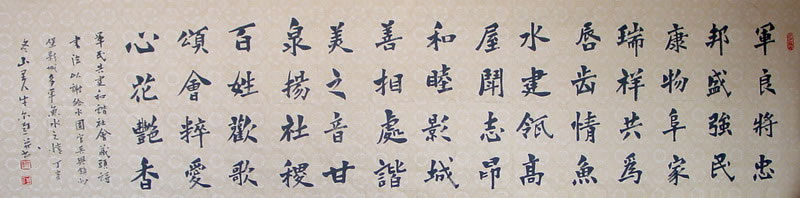 軍良將忠
邦盛強民
康物阜家
瑞祥共爲
唇齿情魚
水建瓴高
屋鬪志昂
和睦影城
善相處諧
美之音甘
泉揚社稷
百姓歡歌
頌會粹愛
心花艷香
軍民共建和諧社會藏頭詩
書法以謝
軍魚水之情丁亥